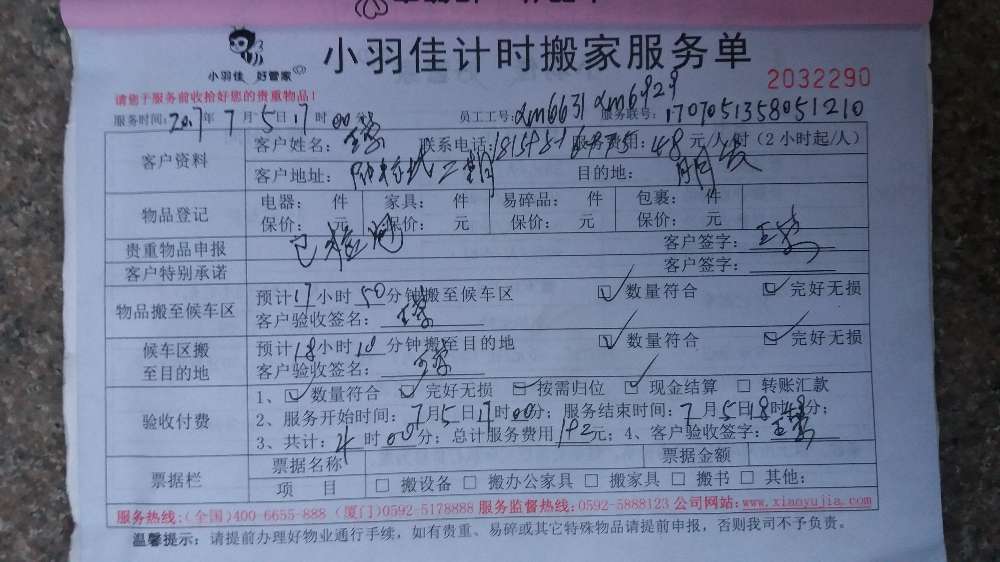 小羽佳 好管家
小羽佳计时搬家服务单
2032290
请您于服务前收拾好您的贵重物品!
服务时间: 2017年 7月 5日 17时 00分 员工工号: xm6631 xm6929 服务联号: 1707051358051210
客户资料
客户姓名: 联系电话: 服务费用: 48 元/人/时(2小时起/人)
客户地址: 二期 目的地:
物品登记
电器: 件 家具: 件 易碎品: 件 包裹: 件
保价: 元 保价: 元 保价: 元 保价: 元
贵重物品申报 已 客户签字:
客户特别承诺 客户签字:
物品搬至候车区
预计17小时50分钟搬至候车区 ☑ 数量符合 ☑ 完好无损
客户验收签名:
候车区搬至目的地
预计18小时10分钟搬至目的地 ☑ 数量符合 ☑ 完好无损
客户验收签名:
验收付费
1、☑ 数量符合 ☑ 完好无损 ☑ 按需归位 ☑ 现金结算 □ 转账汇款
2、服务开始时间: 7月5日17时00分; 服务结束时间: 7月5日18时48分;
3、共计: 4时00分; 总计服务费用 192元; 4、客户验收签字:
票据栏
票据名称 票据金额
项 目 □ 搬设备 □ 搬办公家具 □ 搬家具 □ 搬书 □ 其他:
服务热线:(全国)400-6655-888 (厦门)0592-5178888 服务监督热线:0592-5888123 公司网站:www.xiaoyujia.com
温馨提示: 请提前办理好物业通行手续, 如有贵重、易碎或其它特殊物品请提前申报, 否则我司不予负责。